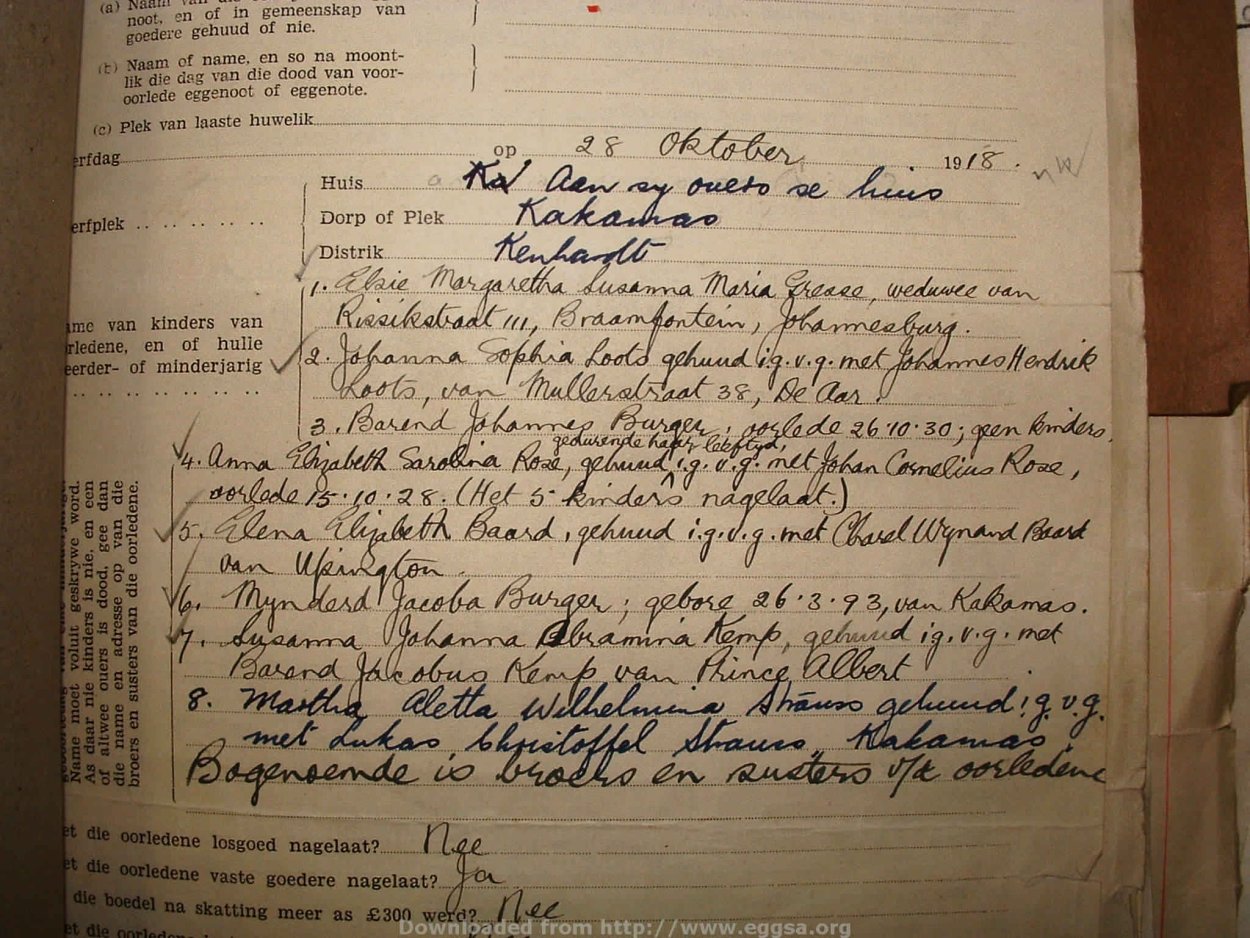 (a) Naam van
noot, en of in gemeenskap van
goedere gehuud of nie.
(b) Naam of name, en so na moont-
lik die dag van die dood van voor-
oorlede eggenoot of eggenote.
(c) Plek van laaste huwelik
erfdag op 28 Oktober 1918.
Huis Aan sy ouers se huis
erfplek
Dorp of Plek Kakamas
Distrik Kenhardt
1. Elsie Margaretha Susanna Maria Grease, weduwee van
Rissikstraat 111, Braamfontein, Johannesburg.
ame van kinders van
rledene, en of hulle
eerder- of minderjarig
2. Johanna Sophia Loots gehuud i.g.v.g. met Johannes Hendrik
Loots, van Mullerstraat 38, De Aar.
3. Barend Johannes Burger; oorlede 26.10.30; geen kinders.
gedurende haar leeftyd,
4. Anna Elizabeth Sarolina Rose, gehuud i.g.v.g. met Johan Cornelius Rose,
oorlede 15.10.28. (Het 5 kinders nagelaat.)
5. Elena Elizabeth Baard, gehuud i.g.v.g. met Charel Wynand Baard
van Upington.
6. Mynderd Jacoba Burger; gebore 26.3.93, van Kakamas.
7. Susanna Johanna Abramina Kemp, gehuud i.g.v.g. met
Barend Jacobus Kemp van Prince Albert
8. Martha Aletta Wilhelmina Strauss gehuud i.g.v.g.
met Lukas Christoffel Strauss, Kakamas.
Bogenoemde is broers en susters v/d oorledene
Name moet voluit geskrywe word.
As daar nie kinders is nie, en een
of altwee ouers is dood, gee dan
die name en adresse op van die
broers en susters van die oorledene.
et die oorledene losgoed nagelaat? Nee
et die oorledene vaste goedere nagelaat? Ja
die boedel na skatting meer as £300 werd? Nee
et die
Downloaded from http://www.eggsa.org